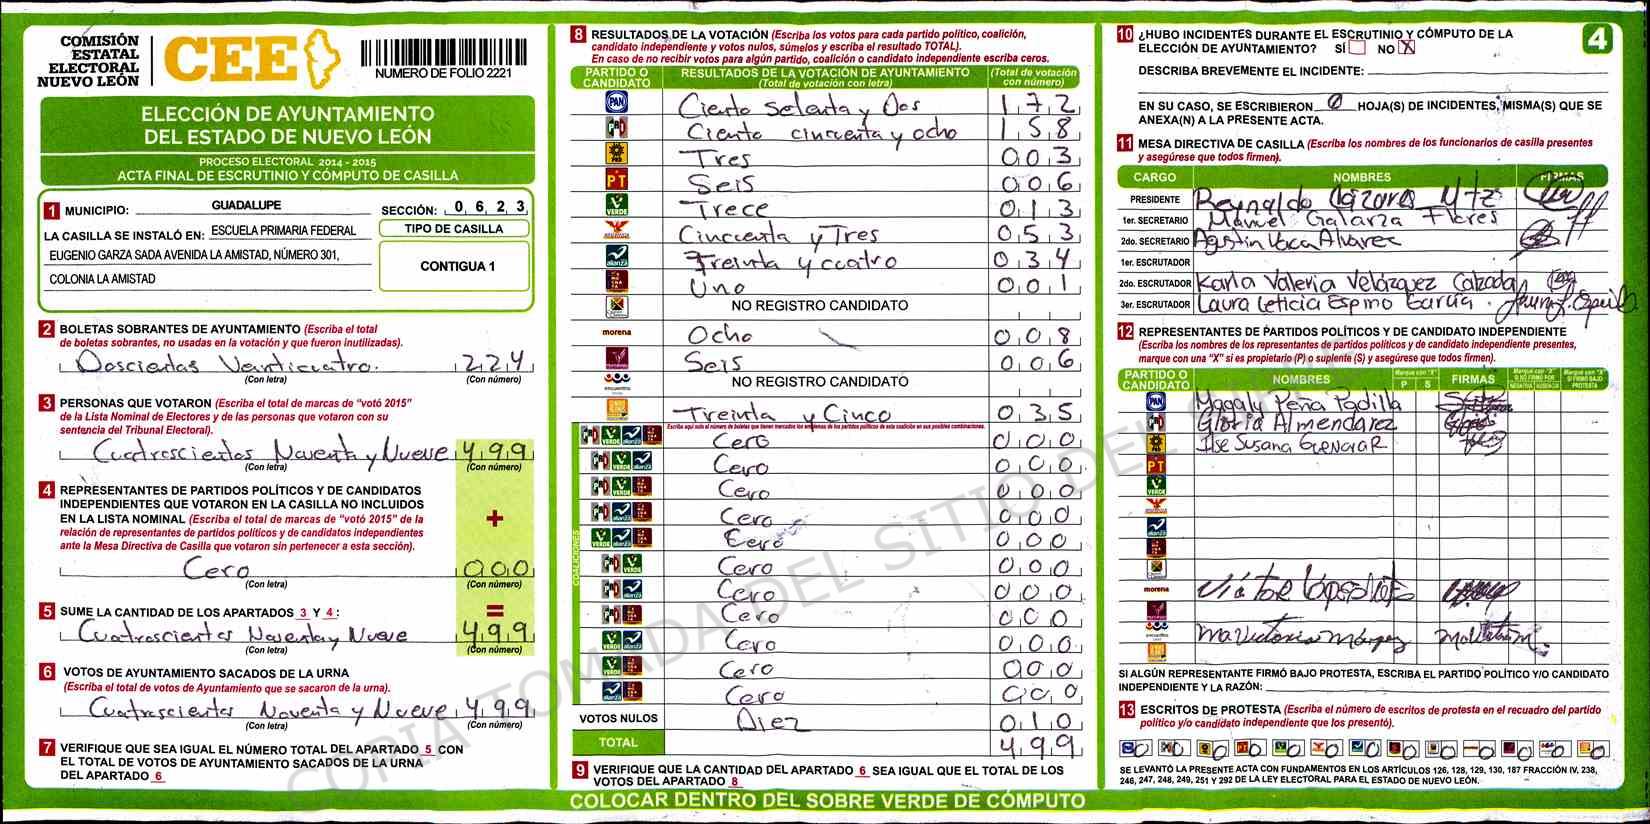 COMISIÓN
ESTATAL
ELECTORAL
NUEVO LEÓN
CEE
NUMERO DE FOLIO 2221
ELECCIÓN DE AYUNTAMIENTO
DEL ESTADO DE NUEVO LEÓN
PROCESO ELECTORAL 2014 - 2015
ACTA FINAL DE ESCRUTINIO Y CÓMPUTO DE CASILLA
1 MUNICIPIO: GUADALUPE SECCIÓN: 0 6 2 3
LA CASILLA SE INSTALÓ EN: ESCUELA PRIMARIA FEDERAL
EUGENIO GARZA SADA AVENIDA LA AMISTAD, NÚMERO 301,
COLONIA LA AMISTAD
TIPO DE CASILLA
CONTIGUA 1
2 BOLETAS SOBRANTES DE AYUNTAMIENTO (Escriba el total
de boletas sobrantes, no usadas en la votación y que fueron inutilizadas).
Doscientas Veinticuatro. 224
(Con letra) (Con número)
3 PERSONAS QUE VOTARON (Escriba el total de marcas de “votó 2015”
de la Lista Nominal de Electores y de las personas que votaron con su
sentencia del Tribunal Electoral).
Cuatroscientos Noventa y Nueve 499
(Con letra) (Con número)
4 REPRESENTANTES DE PARTIDOS POLÍTICOS Y DE CANDIDATOS
INDEPENDIENTES QUE VOTARON EN LA CASILLA NO INCLUIDOS
EN LA LISTA NOMINAL (Escriba el total de marcas de “votó 2015” de la
relación de representantes de partidos políticos y de candidatos independientes
ante la Mesa Directiva de Casilla que votaron sin pertenecer a esta sección).
+
Cero 000
(Con letra) (Con número)
5 SUME LA CANTIDAD DE LOS APARTADOS 3 Y 4 : =
Cuatroscientos Noventa y Nueve 499
(Con letra) (Con número)
6 VOTOS DE AYUNTAMIENTO SACADOS DE LA URNA
(Escriba el total de votos de Ayuntamiento que se sacaron de la urna).
Cuatroscientos Noventa y Nueve 499
(Con letra) (Con número)
7 VERIFIQUE QUE SEA IGUAL EL NÚMERO TOTAL DEL APARTADO 5 CON
EL TOTAL DE VOTOS DE AYUNTAMIENTO SACADOS DE LA URNA
DEL APARTADO 6
8 RESULTADOS DE LA VOTACIÓN (Escriba los votos para cada partido político, coalición,
candidato independiente y votos nulos, súmelos y escriba el resultado TOTAL).
En caso de no recibir votos para algún partido, coalición o candidato independiente escriba ceros.
PARTIDO O CANDIDATO RESULTADOS DE LA VOTACIÓN DE AYUNTAMIENTO (Total de votación con letra) (Total de votación con número)
PAN Ciento Setenta y Dos 172
PRD Ciento cincuenta y ocho 158
PRD Tres 003
PT Seis 006
VERDE Trece 013
Cincuenta y Tres 053
alianza Treinta y cuatro 034
Uno 001
NO REGISTRO CANDIDATO
morena Ocho 008
Seis 006
encuentro NO REGISTRO CANDIDATO
Treinta y Cinco 035
Escriba aquí solo el número de boletas que tienen marcados los emblemas de los partidos políticos de esta coalición en sus posibles combinaciones.
COALICIONES
Cero 000
Cero 000
Cero 000
Cero 000
Cero 000
Cero 000
Cero 000
Cero 000
Cero 000
Cero 000
Cero 000
VOTOS NULOS Diez 010
TOTAL 499
9 VERIFIQUE QUE LA CANTIDAD DEL APARTADO 6 SEA IGUAL QUE EL TOTAL DE LOS
VOTOS DEL APARTADO 8
10 ¿HUBO INCIDENTES DURANTE EL ESCRUTINIO Y CÓMPUTO DE LA
ELECCIÓN DE AYUNTAMIENTO? SÍ NO X
4
DESCRIBA BREVEMENTE EL INCIDENTE:
EN SU CASO, SE ESCRIBIERON 0 HOJA(S) DE INCIDENTES, MISMA(S) QUE SE
ANEXA(N) A LA PRESENTE ACTA.
11 MESA DIRECTIVA DE CASILLA (Escriba los nombres de los funcionarios de casilla presentes
y asegúrese que todos firmen).
CARGO NOMBRES FIRMAS
PRESIDENTE Reynaldo Cazares Mtz
1er. SECRETARIO Manuel Galarza Flores
2do. SECRETARIO Agustin Vaca Alvarez
1er. ESCRUTADOR
2do. ESCRUTADOR Karla Valeria Velázquez Calzada
3er. ESCRUTADOR Laura Leticia Espino Garcia.
12 REPRESENTANTES DE PARTIDOS POLÍTICOS Y DE CANDIDATO INDEPENDIENTE
(Escriba los nombres de los representantes de partidos políticos y de candidato independiente presentes,
marque con una “X” si es propietario (P) o suplente (S) y asegúrese que todos firmen).
PARTIDO O CANDIDATO NOMBRES Marque con "X" P S FIRMAS Marque con "X" SI NO FIRMÓ POR NEGATIVA AUSENCIA Marque con "X" SI FIRMÓ BAJO PROTESTA
PAN Magaly Peña Padilla
Gloria Almendarez
PRD Ilse Susana Guevara R
PT
VERDE
alianza
morena Victor
encuentro Ma Victoria
SI ALGÚN REPRESENTANTE FIRMÓ BAJO PROTESTA, ESCRIBA EL PARTIDO POLÍTICO Y/O CANDIDATO
INDEPENDIENTE Y LA RAZÓN:
13 ESCRITOS DE PROTESTA (Escriba el número de escritos de protesta en el recuadro del partido
político y/o candidato independiente que los presentó).
0 0 0 0 0 0 0 0 0 0 0 0 0
SE LEVANTÓ LA PRESENTE ACTA CON FUNDAMENTOS EN LOS ARTÍCULOS 126, 128, 129, 130, 187 FRACCIÓN IV, 238,
246, 247, 248, 249, 251 Y 292 DE LA LEY ELECTORAL PARA EL ESTADO DE NUEVO LEÓN.
COLOCAR DENTRO DEL SOBRE VERDE DE CÓMPUTO
COPIA TOMADA DEL SITIO DEL